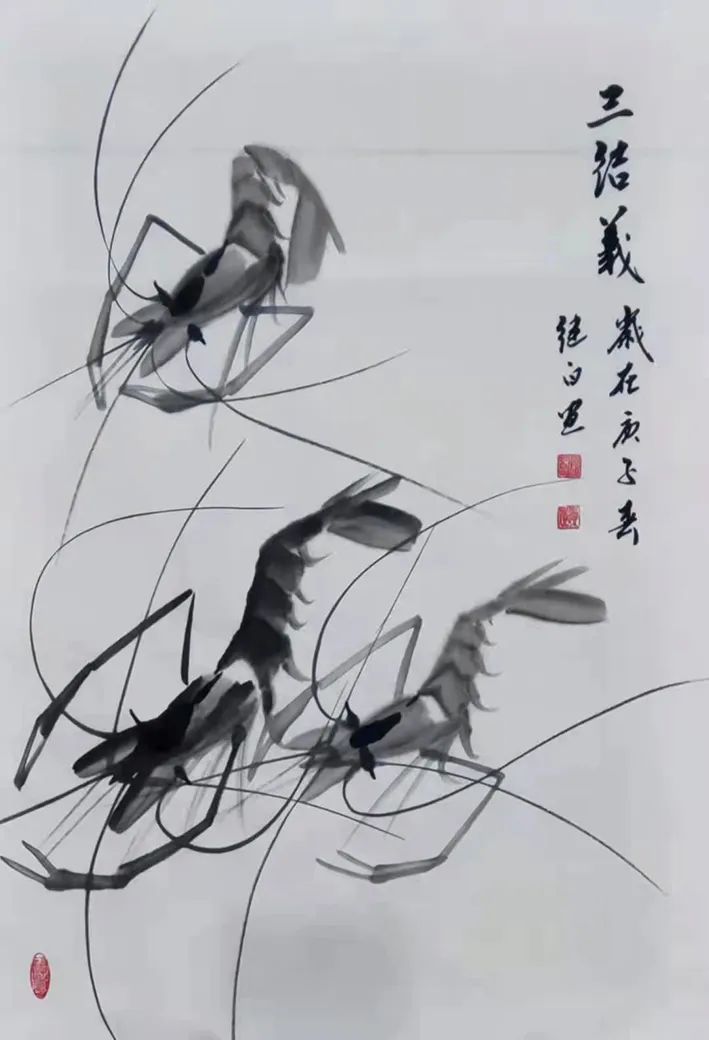 三结義
歲在庚子春
继白画